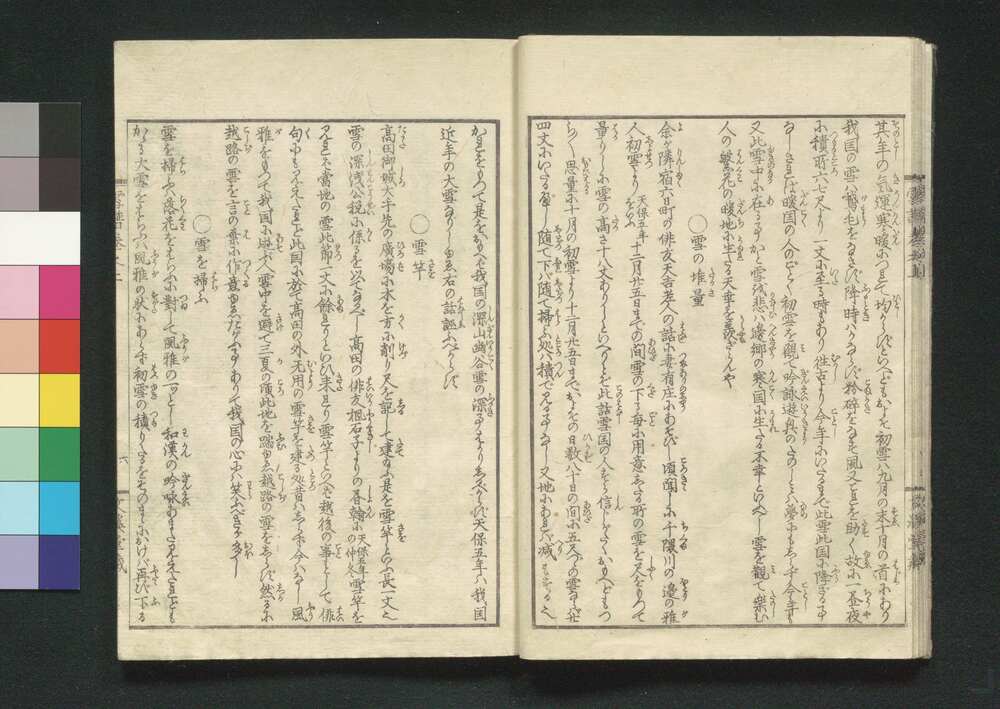 其年の気運寒暖につれて均からずといへども、およそ初雪は九月の末十月の首にあり
我国の雪は鵞毛をなさず、降時はかならず粉砕をなす、風又これを助く、故に一昼夜
に積所六七尺より一丈に至る時もあり、往古より今年にいたるまで此雪此国に降ざる事
なし、されば暖国の人のごとく初雪を観て吟詠遊興のたのしみは夢にもしらず、今年も
又此雪中に在る事かと雪を悲は辺郷の寒国に生たる不幸といふべし、雪を観て楽む
人の繁花の暖地に生たる天幸を羨ざらんや
○雪の堆量
余が隣宿六日町の俳友天吉老人の話に、妻有庄にあそびし頃聞しに、千隈川の辺の雅
人、初雪より天保五年をいふ十二月廿五日までの間、雪の下る毎に用意したる所の雪を尺をもつて
量りしに雪の高さ十八丈ありしといへりとぞ、此話雪国の人すら信じがたくおもへども、つ
らく思量に、十月の初雪より十二月廿五日までおよその日数八十日の間に五尺づゝの雪ならば廿
四丈にいたるべし、随て下ば随て掃ふ処は積て見る事なし、又地にあれば減もする也
かれをもつて是をおもへば、我国の深山幽谷雪の深事はかりしるべからず、天保五年は我国
近年の大雪なりしゆゑ、右の話誣ふべからず
○雪竿
高田御城大手先の広場に、木を方に削り尺を記して建給ふ、是を雪竿といふ、長一丈也
雪の深浅公税に係るを以てなるべし、高田の俳友楓石子よりの書翰に天保五年の仲冬雪竿を
見れば当地の雪此節一丈に余れりといひ来れり、雪竿といへば越後の事として俳
句にも見えたれど、此国に於て高田の外无用の雪竿を建る処昔はしらず今はなし、風
雅をもつて我国に遊ぶ人、雪中を避て三夏の頃此地を踏ゆゑ、越路の雪をしらず、然るに
越路の雪を言の葉に作意ゆゑたがふ事ありて、我国の心には笑ふべきが多し
○雪を掃ふ
雪を掃ふは落花をはらふに対して風雅の一とし、和漢の吟咏あまた見えたれども
かゝる大雪をはらふは風雅の状にあらず、初雪の積りたるをそのまゝにおけば、再び下る